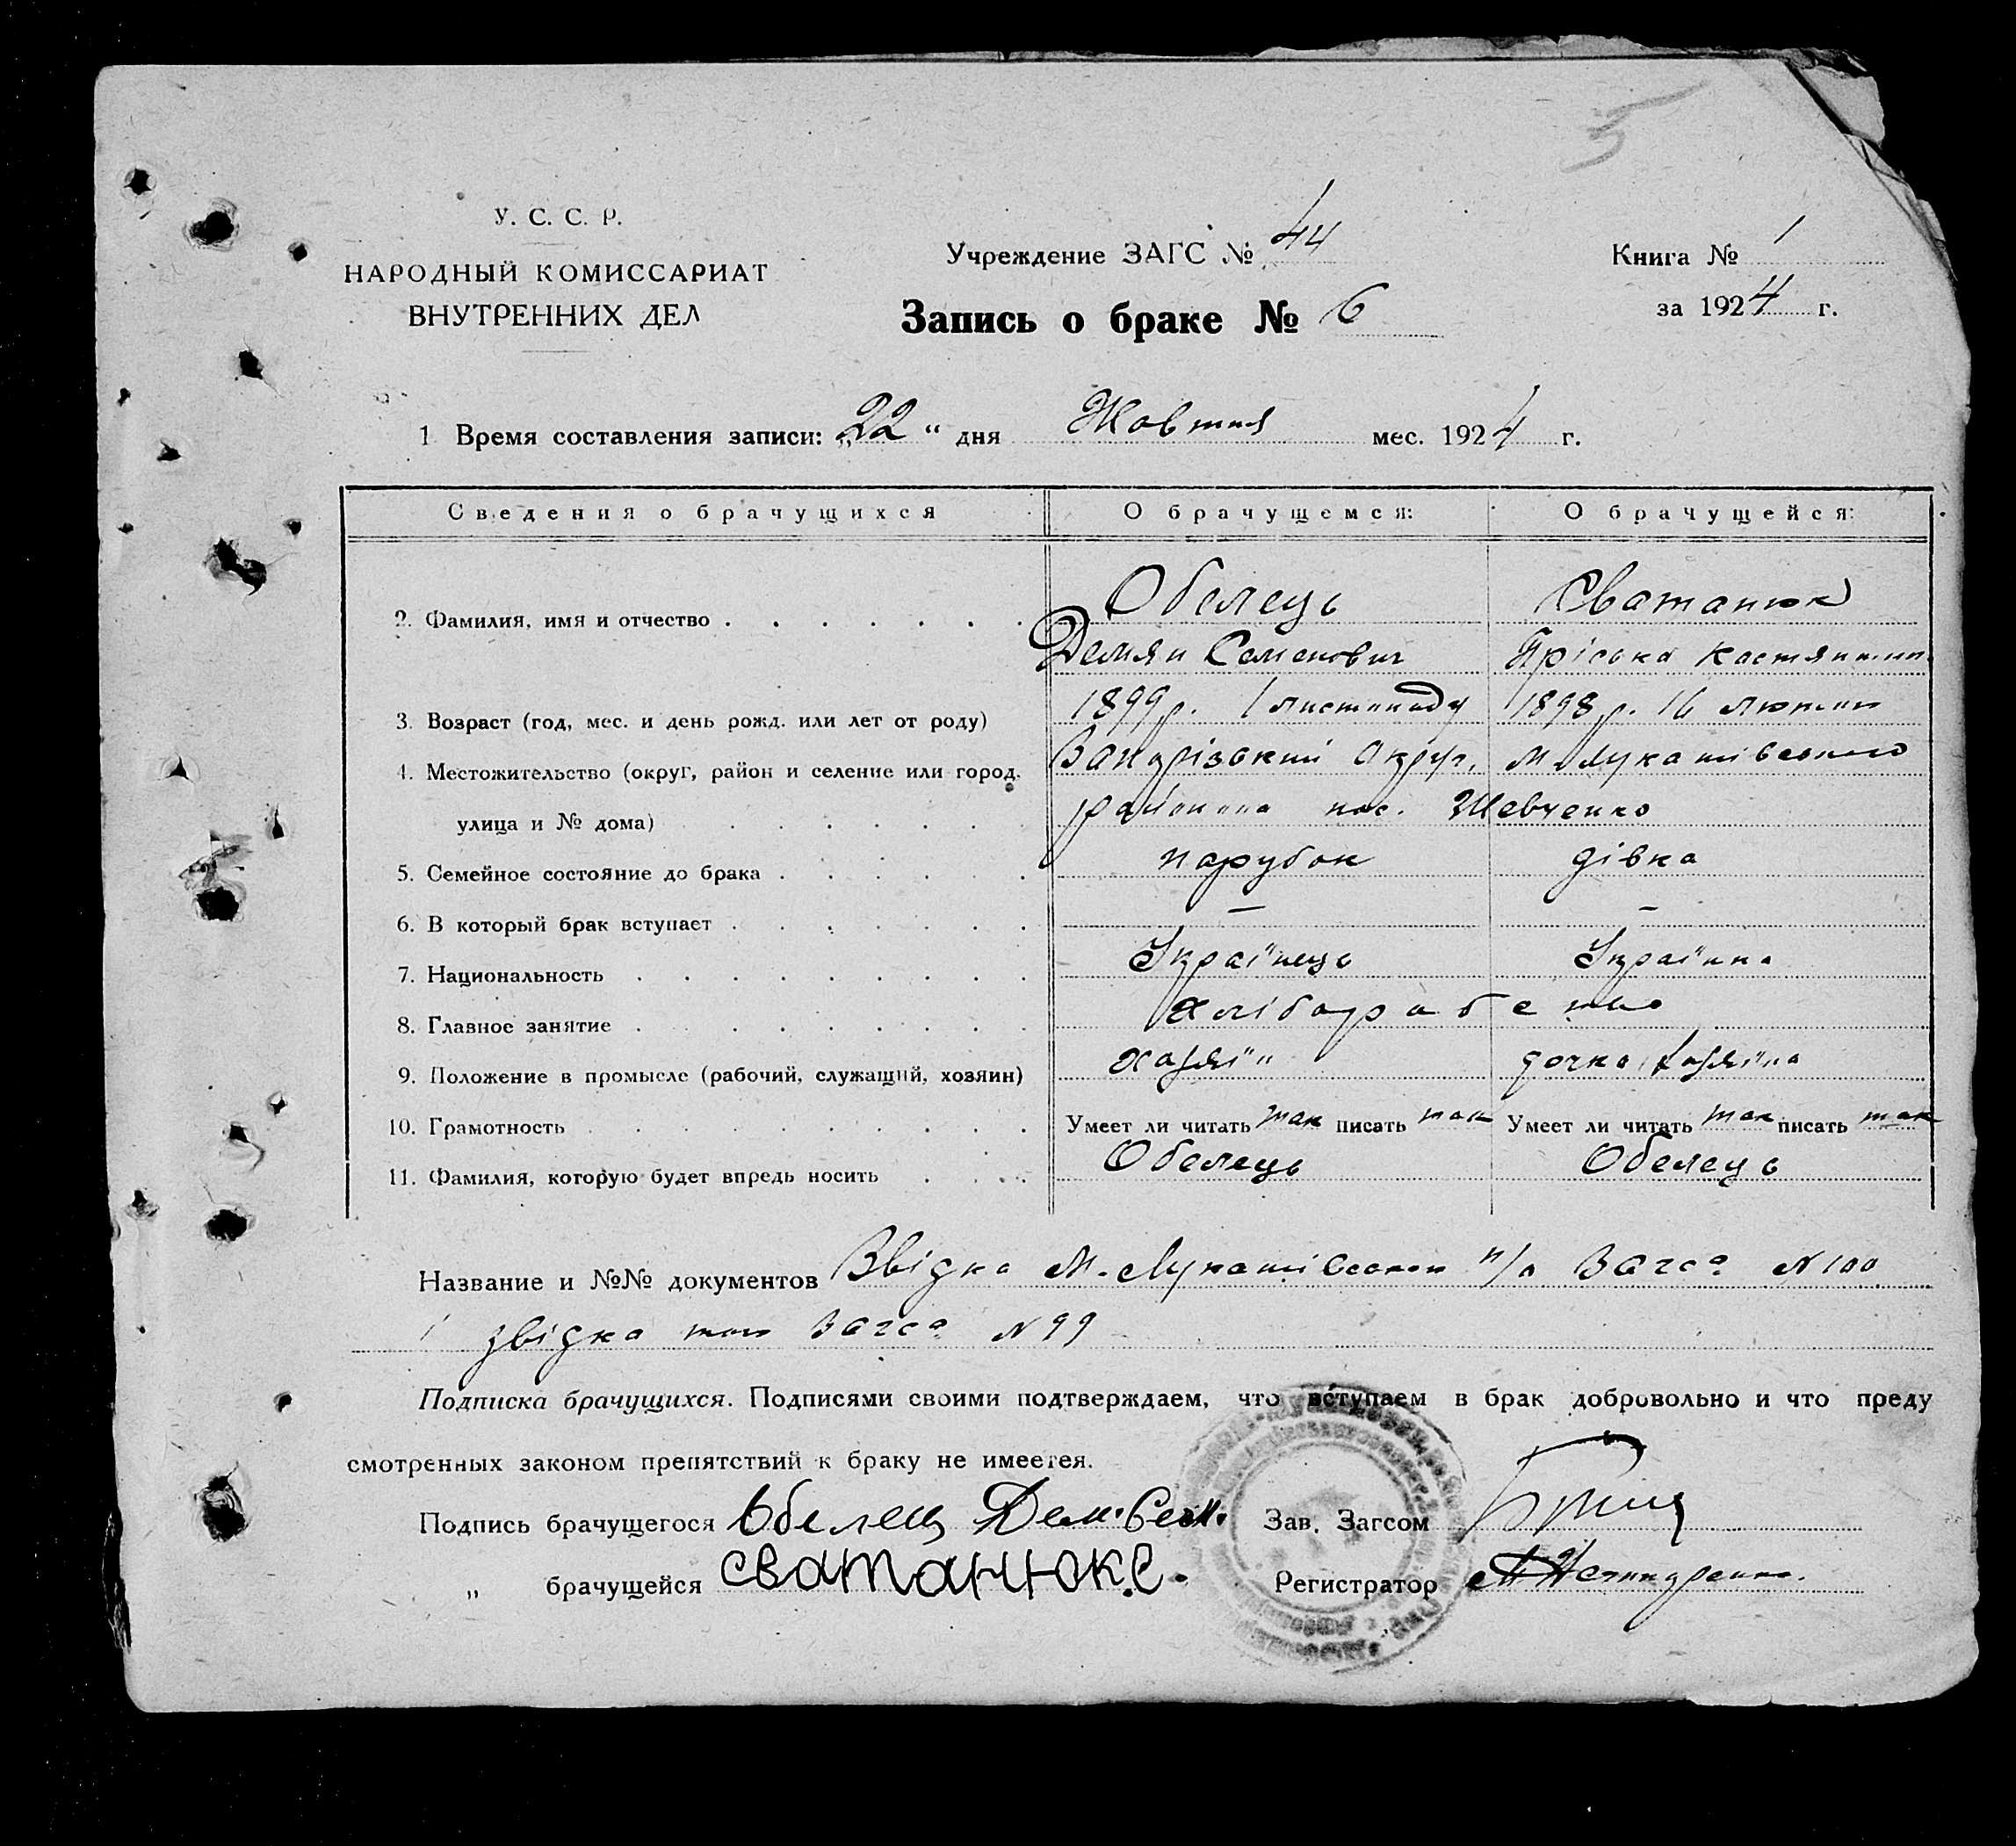 5
У. С. С. Р.
НАРОДНЫЙ КОМИССАРИАТ
ВНУТРЕННИХ ДЕЛ
Учреждение ЗАГС № 44
Книга № 1
Запись о браке № 6
за 1924 г.
1 Время составления записи: „22“ дня Жовтня мес. 1924 г.
Сведения о брачущихся О брачущемся: О брачущейся:
2. Фамилия, имя и отчество Обелець Сватанюк
Демян Семенович Пріська
3. Возраст (год, мес. и день рожд. или лет от роду) 1899 р. 1 листопаду 1898 р. 16 лютня
4. Местожительство (округ, район и селение или город, Запорізький округ, М. Лукашівського
улица и № дома) району пос. Шевченко
5. Семейное состояние до брака парубок дівка
6. В который брак вступает — —
7. Национальность Українець Українка
8. Главное занятие хліборобство
9. Положение в промысле (рабочий, служащий, хозяин) хазяїн дочка хазяїна
10. Грамотность Умеет ли читать так писать так Умеет ли читать так писать так
11. Фамилия, которую будет впредь носить Обелець Обелець
Название и №№ документов Звідка М. Лукашівського п/о Загса № 100
і звідка того Загса № 99
Подписка брачущихся. Подписями своими подтверждаем, что вступаем в брак добровольно и что преду
смотренных законом препятствий к браку не имеется.
Подпись брачущегося Обелец Дем. Сем. Зав. Загсом
„ брачущейся Сватанюк. Регистратор